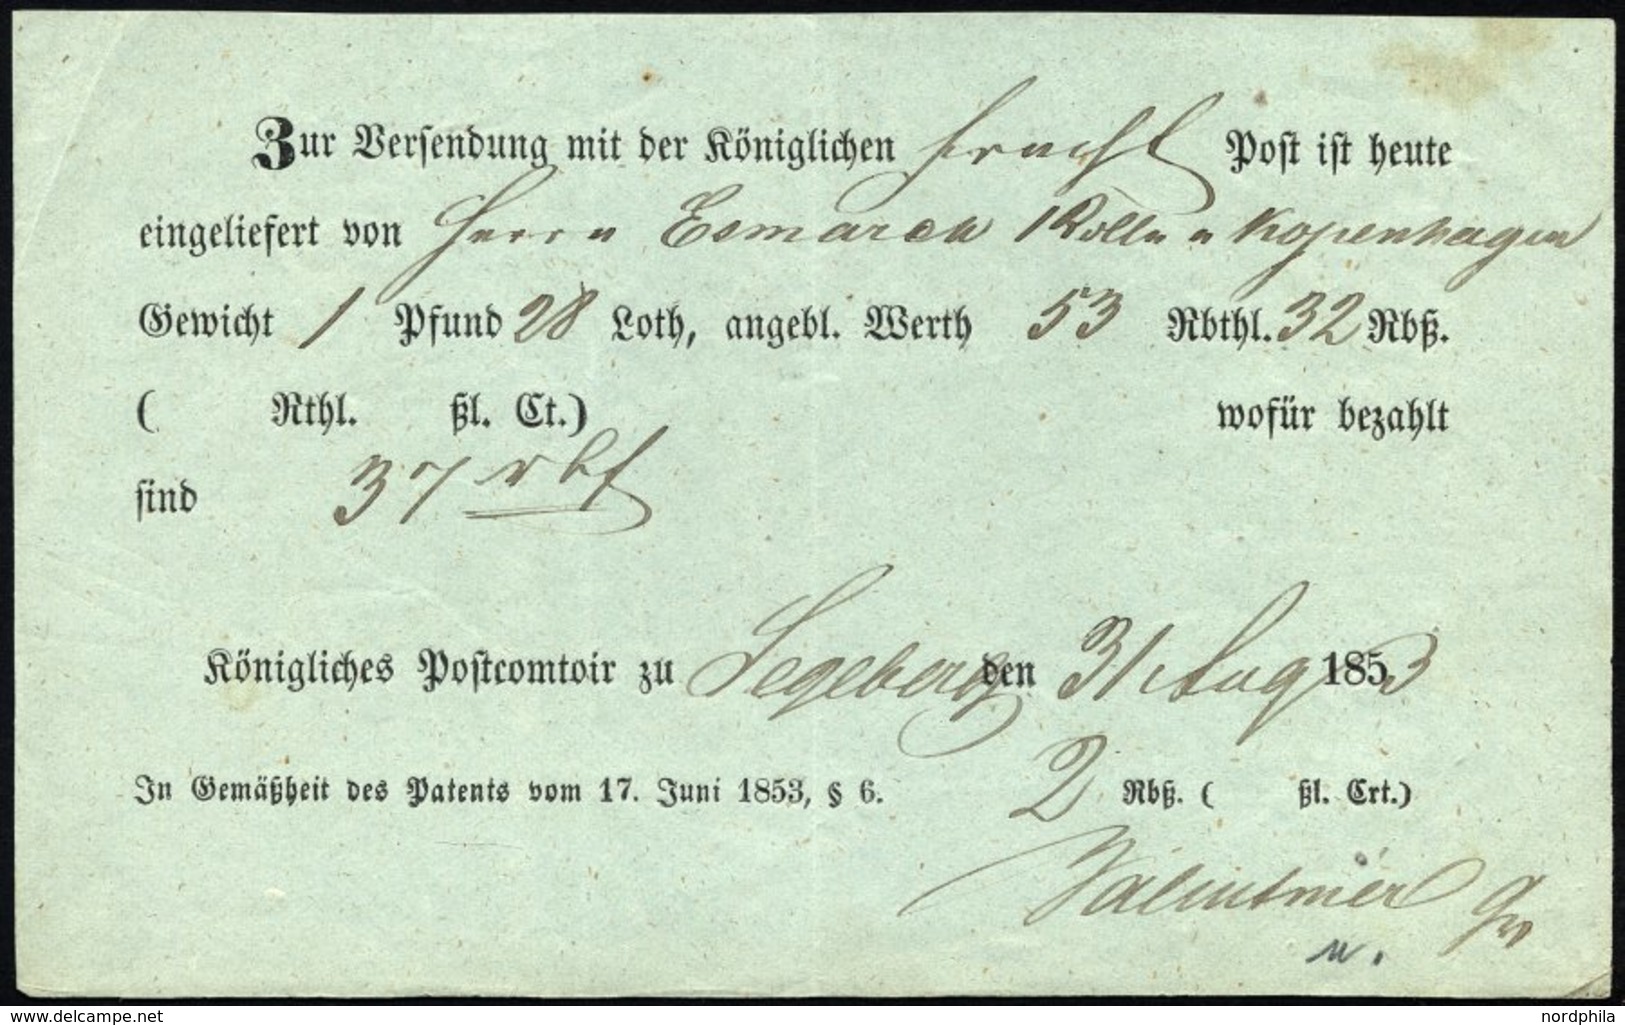 Zur Versendung mit der Königlichen fracht Post ist heute
eingeliefert von Herrn Esmarch 1 Rolle n Kopenhagen
Gewicht 1 Pfund 28 Loth, angebl. Werth 53 Rbthl. 32 Rbß.
( Rthl. ßl. Ct.) wofür bezahlt
sind 37 rbß
Königliches Postcomtoir zu Segeberg den 31 Aug 1853
In Gemäßheit des Patents vom 17. Juni 1853, § 6. 2 Rbß. ( ßl. Crt.)
www.delcampe.net
nordphila